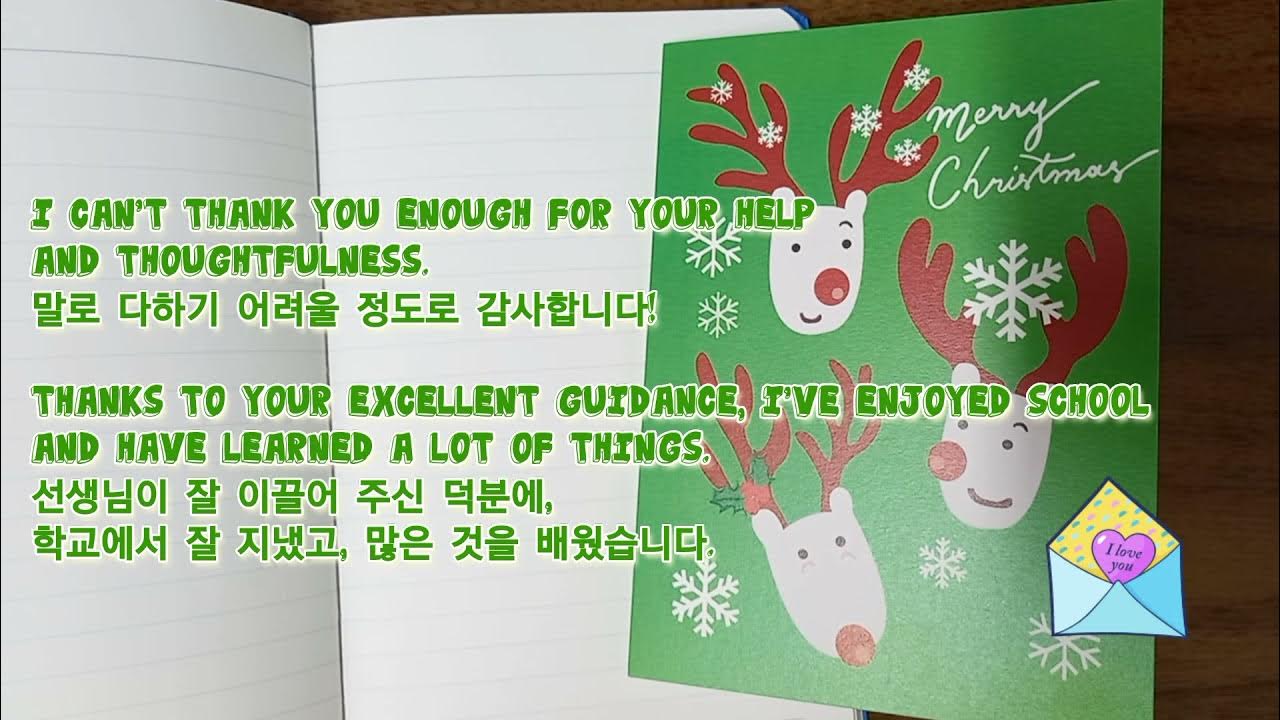 Merry
Christmas
I CAN'T THANK YOU ENOUGH FOR YOUR HELP
AND THOUGHTFULNESS.
말로 다하기 어려울 정도로 감사합니다!
THANKS TO YOUR EXCELLENT GUIDANCE, I'VE ENJOYED SCHOOL
AND HAVE LEARNED A LOT OF THINGS.
선생님이 잘 이끌어 주신 덕분에,
학교에서 잘 지냈고, 많은 것을 배웠습니다.
I love
you